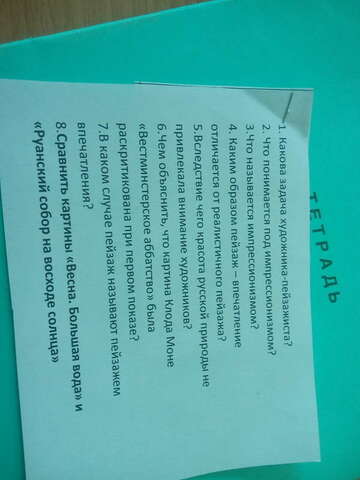 ТЕТРАДЬ
1. Какова задача художника-пейзажиста?
2. Что понимается под импрессионизмом?
3.Что называется импрессионизмом?
4. Каким образом пейзаж – впечатление
отличается от реалистичного пейзажа?
5.Вследствие чего красота русской природы не
привлекала внимание художников?
6.Чем объяснить, что картина Клода Моне
«Вестминстерское аббатство» была
раскритикована при первом показе?
7.В каком случае пейзаж называют пейзажем
впечатления?
8.Сравнить картины «Весна. Большая вода» и
«Руанский собор на восходе солнца»